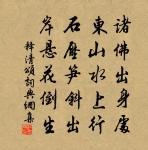 諸佛出身處
東山水上行
石壓笋斜出
岸懸花倒生
釋清頌詞典網集